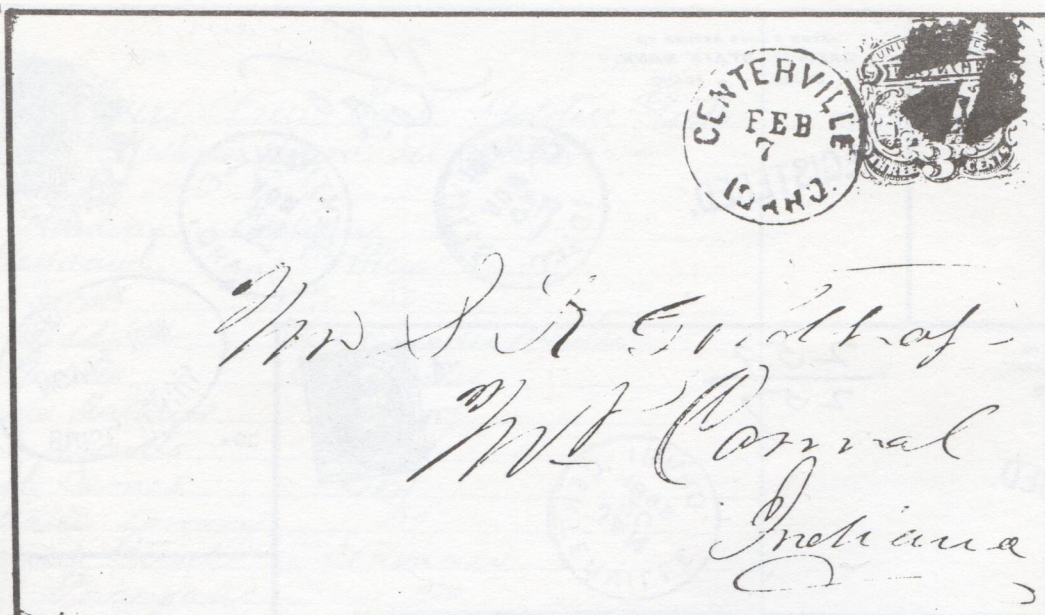 CENTERVILLE
FEB
7
IDAHO.
UNITED
POSTAGE
THREE 3 CENTS
Mrs S R
Mt Carmel
Indiana